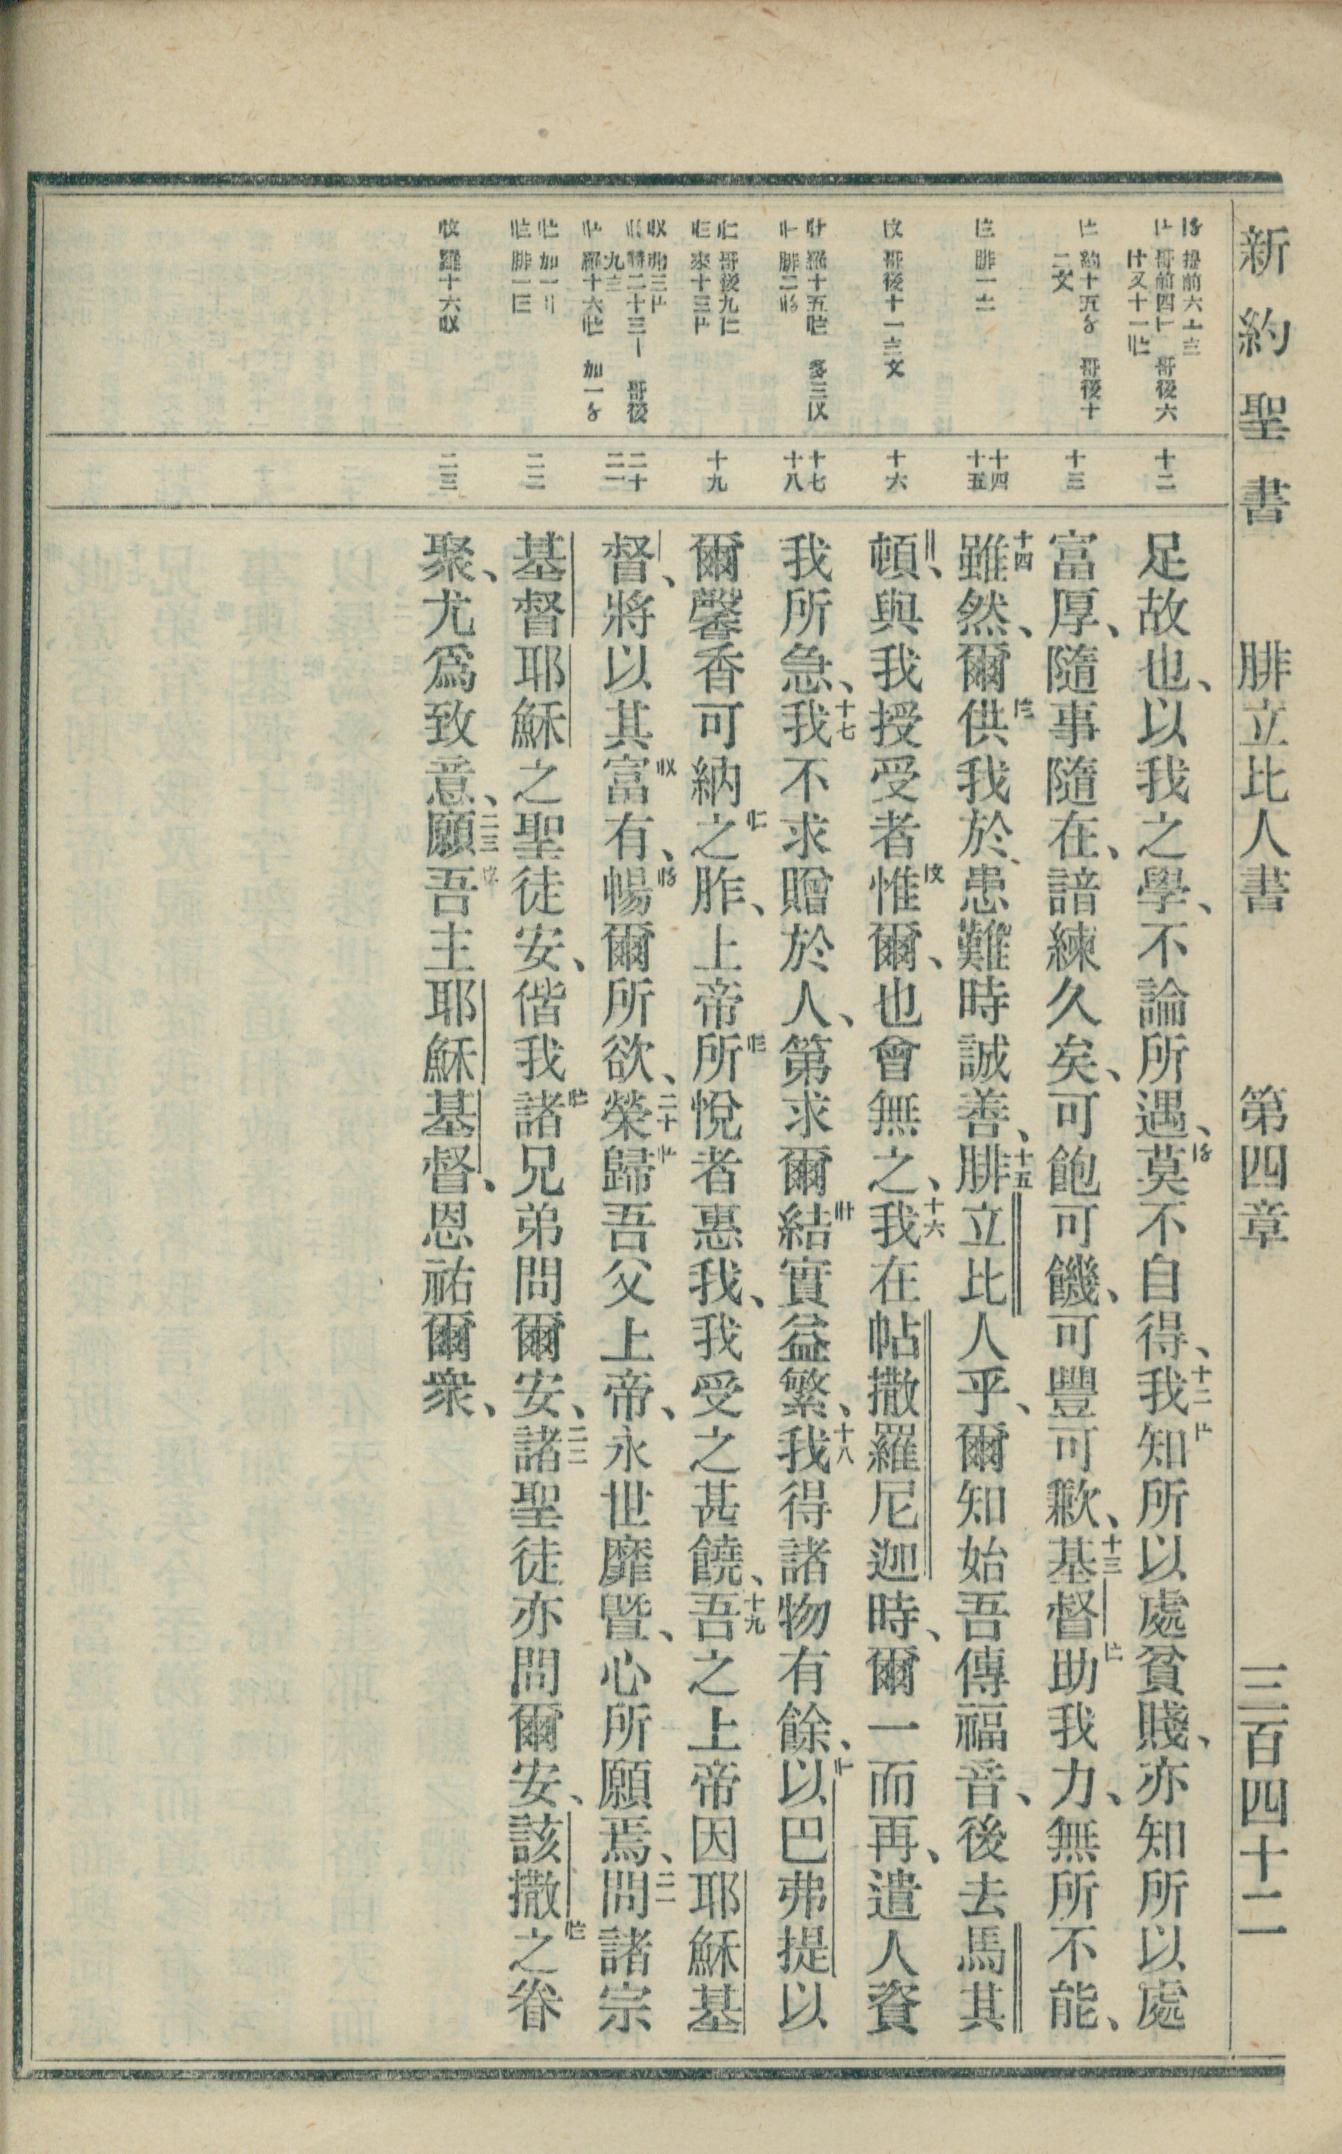 新約聖書 腓立比人書 第四章 三百四十二
十二
十三
十四
十五
十六
十七
十八
十九
二十
二一
二二
二三
足故也、以我之學、不論所遇、莫不自得、十二我知所以處貧賤、亦知所以處
富厚、隨事隨在、諳練久矣、可飽可饑、可豐可歉、十三基督助我力、無所不能、
十四雖然、爾供我於患難時誠善、十五腓立比人乎、爾知始吾傳福音、後去馬其
頓、與我授受者惟爾、也會無之、十六我在帖撒羅尼迦時、爾一而再、遣人資
我所急、十七我不求贈於人、第求爾結實益繁、十八我得諸物有餘、以巴弗提以
爾馨香可納之胙、上帝所悅者惠我、我受之甚饒、十九吾之上帝因耶穌基
督、將以其富有、暢爾所欲、二十榮歸吾父上帝、永世靡曁、心所願焉、二一問諸宗
基督耶穌之聖徒安、偕我諸兄弟問爾安、二二諸聖徒亦問爾安、該撒之眷
聚、尤爲致意、二三願吾主耶穌基督、恩祐爾衆、